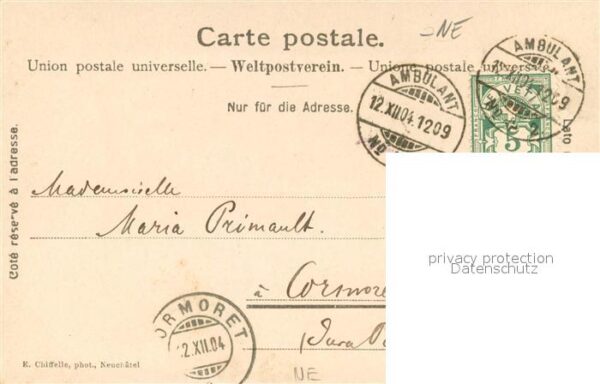 NE
Carte postale.
Union postale universelle. — Weltpostverein. — Unione postale universale
Nur für die Adresse.
AMBULANT
12.XII.04.1209
No
AMBULANT
12.XII.04.1209
No 2
5
Côté réservé à l'adresse.
Lato
Mademoiselle
Maria Primault.
à Cormore
(Jura
CORMORET
12.XII.04
E. Chiffelle, phot., Neuchâtel
NE
privacy protection
Datenschutz